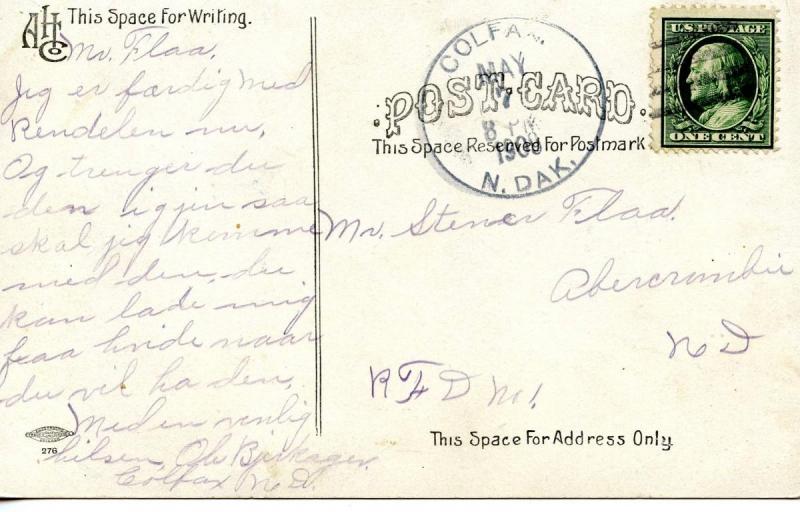 AHC
This Space For Writing.
Mr. Flaa.
Jeg er færdig med
Rendelen nu,
Og trenger du
den igjen saa
skal jeg komme
med den, du
kan lade mig
faa hvide naar
du vil ha den,
Med en venlig
hilsen, Ole
Colfax N.D.
276
COLFAX
MAY
7
8 PM
1909
N. DAK.
POST CARD.
This Space Reserved For Postmark
U.S. POSTAGE
ONE CENT
Mr. Stener Flaa.
Abercrombie
N D
R F D No 1.
This Space For Address Only.